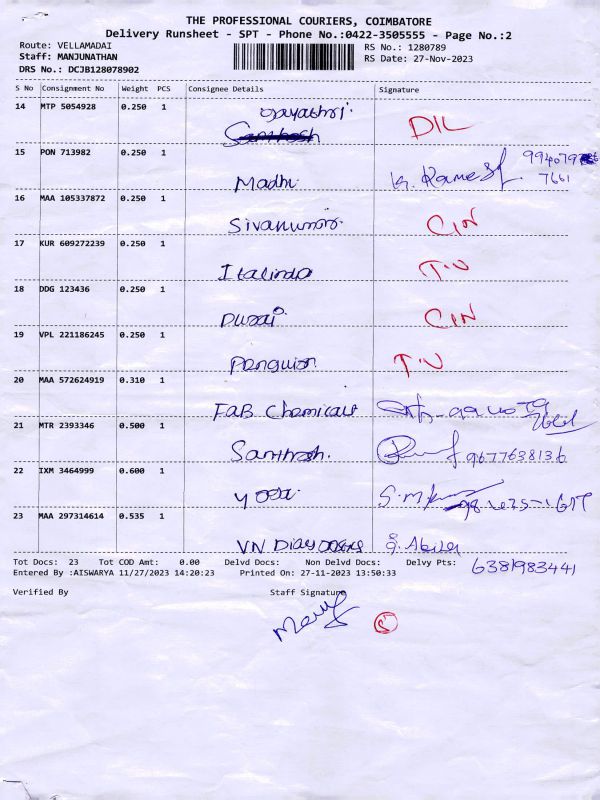 THE PROFESSIONAL COURIERS, COIMBATORE
Delivery Runsheet - SPT - Phone No.:0422-3505555 - Page No.:2
Route: VELLAMADAI RS No.: 1280789
Staff: MANJUNATHAN RS Date: 27-Nov-2023
DRS No.: DCJB128078902
S No Consignment No Weight PCS Consignee Details Signature
14 MTP 5054928 0.250 1 Jayashri. DIL
Santhosh
15 PON 713982 0.250 1 Madhu K. Ramesh 9940797661
16 MAA 105337872 0.250 1 CIN
17 KUR 609272239 0.250 1 Italinda T.N
18 DDG 123436 0.250 1 Durai. CIN
19 VPL 221186245 0.250 1 Penguin. T.N
20 MAA 572624919 0.310 1 FaB Chemicals
21 MTR 2393346 0.500 1 Santhosh. 9677638136
22 IXM 3464999 0.600 1
23 MAA 297314614 0.535 1 VN 6381983441
Tot Docs: 23 Tot COD Amt: 0.00 Delvd Docs: Non Delvd Docs: Delvy Pts:
Entered By :AISWARYA 11/27/2023 14:20:23 Printed On: 27-11-2023 13:50:33
Verified By Staff Signature
5